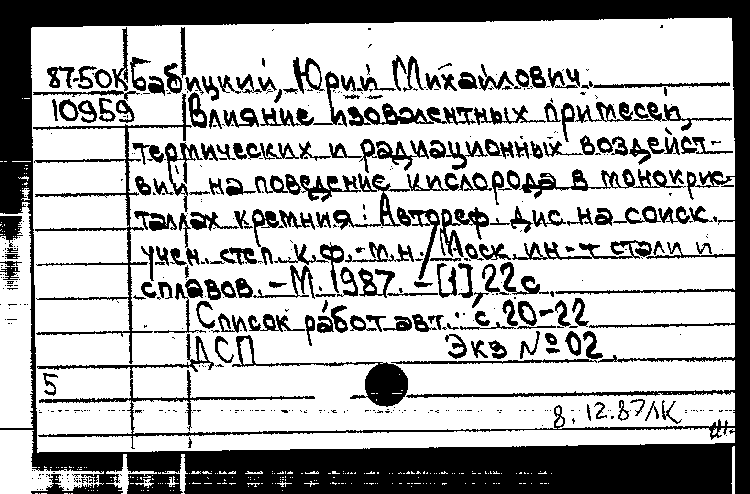 87-50К Бабицкий, Юрий Михайлович.
10959 Влияние изовалентных примесей,
термических и радиационных воздейст-
вий на поведение кислорода в монокрис-
таллах кремния: Автореф. дис. на соиск.
учен. степ. к.ф.-м.н. / Моск. ин-т стали и
сплавов. - М. 1987. - [1], 22 с.
Список работ авт.: с. 20-22
ДСП Экз № 02.
5
8.12.87 ЛК